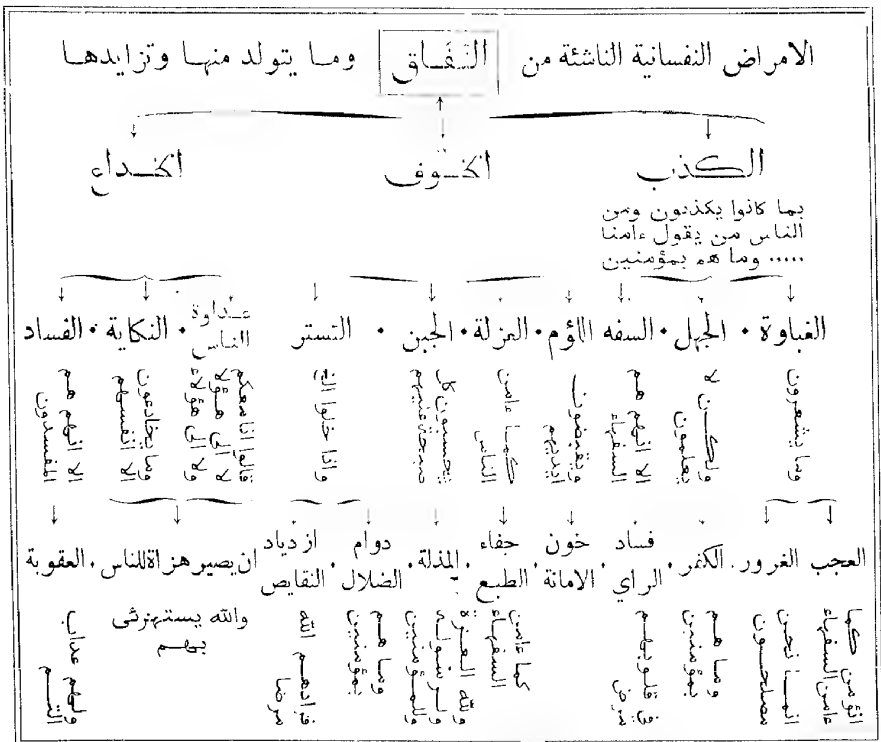 الامراض النفسانية الناشئة من النفاق وما يتولد منها وتزايدها
الكذب
الخوف
الخداع
بما كانوا يكذبون ومن
الناس من يقول ءامنا
..... وما هم بمؤمنين
الغباوة • الجهل • السفه • اللؤم • العزلة • الجبن • التستر
عداوة
الناس • النكاية • الفساد
وما يشعرون
ولكن لا
يعلمون
الا انهم هم
السفهاء
ويقبضون
ايديهم
كما ءامن
الناس
يحسبون كل
صيحة عليهم
واذا خلوا الخ
قالوا انا معكم
لا الى هؤلا
ولا الى هؤلاء
وما يخادعون
الا انفسهم
الا انهم هم
المفسدون
العجب • الغرور • الكفر
فساد
الراي
خون
الامانة
جفاء
الطبع
المذلة
دوام
الضلال
ازدياد
النقايص
ان يصير هزاة للناس • العقوبة
انؤمن كما
ءامن السفهاء
انما نحن
مصلحون
وما هم
بمؤمنين
في قلوبهم
مرض
كما ءامن
السفهاء
ولله العزة
ولرسوله
وللمؤمنين
وما هم
بمؤمنين
فزادهم الله
مرضا
والله يستهزئى
بهم
ولهم عذاب
اليم